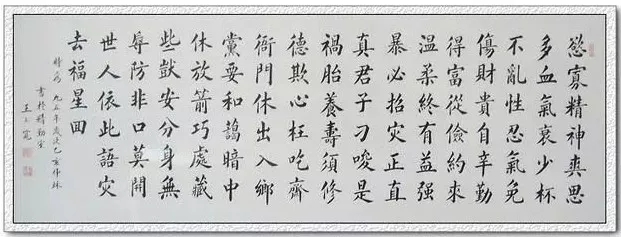 慾寡精神爽思
多血氣衰少杯
不亂性忍氣免
傷財貴自辛勤
得富從儉約來
温柔終有益强
暴必招灾正直
真君子刁唆是
禍胎養壽須修
德欺心枉吃齊
衙門休出入鄉
黨要和藹暗中
休放箭巧處藏
些獃安分身無
辱防非口莫開
世人依此語灾
去福星回
時為九五年歲次乙亥仲秋
書於精勤室